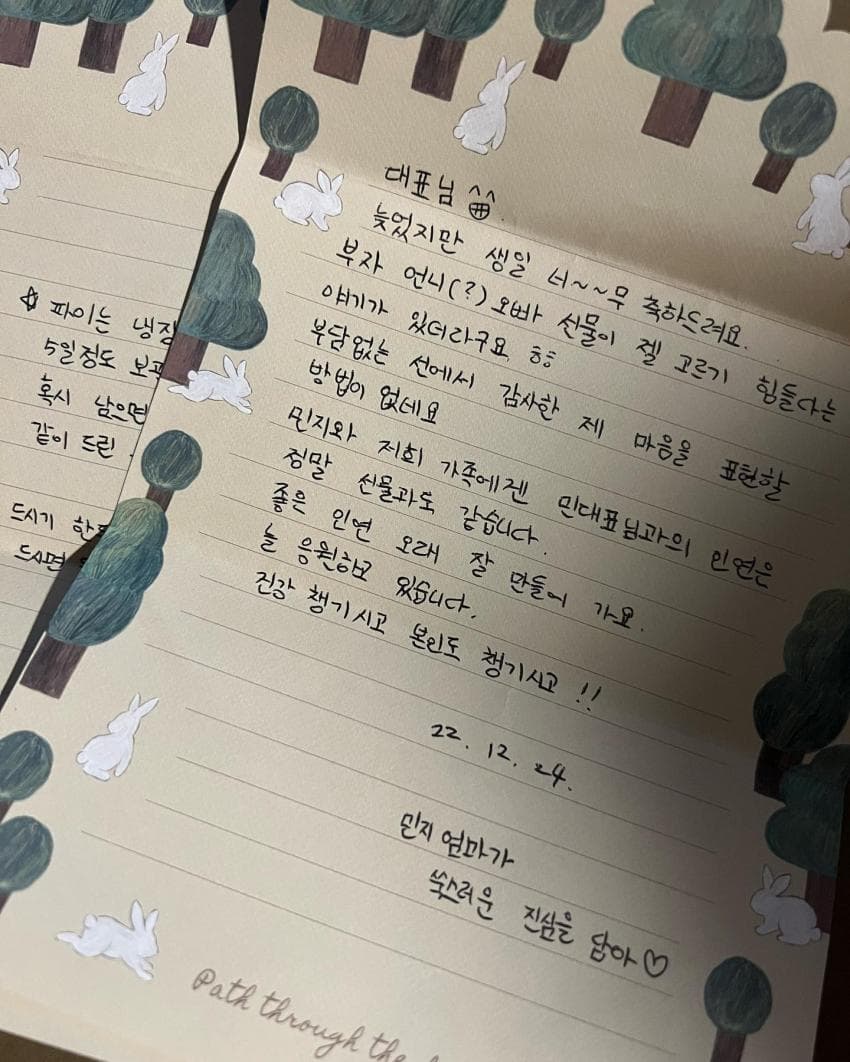 ☆ 파이는 냉장
5일정도 보
혹시 남으면
같이 드린
드시기 한
드시면
대표님 ^^
늦었지만 생일 너~~무 축하드려요.
부자 언니(?) 오빠 선물이 젤 고르기 힘들다는
얘기가 있더라구요 ㅎㅎ
부담없는 선에서 감사한 제 마음을 표현할
방법이 없네요
민지와 저희 가족에겐 민대표님과의 인연은
정말 선물과도 같습니다.
좋은 인연 오래 잘 만들어 가요.
늘 응원하고 있습니다.
건강 챙기시고 본인도 챙기시고 !!
22. 12. 24.
민지 엄마가
쑥스러운 진심을 담아♡
Path through the